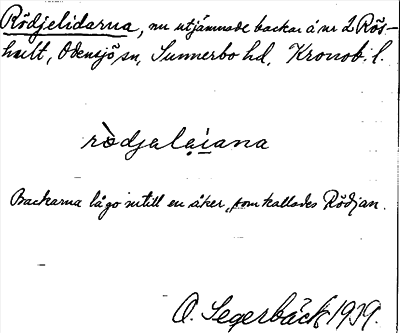 Rödjelidarna, nu utjämnade backar å nr 2 Rös-
hult, Odensjö sn, Sunnerbo hd, Kronob. l.
rödjalaiana
Backarna lågo intill en åker, som kallades Rödjan.
O. Segerbäck 1939.